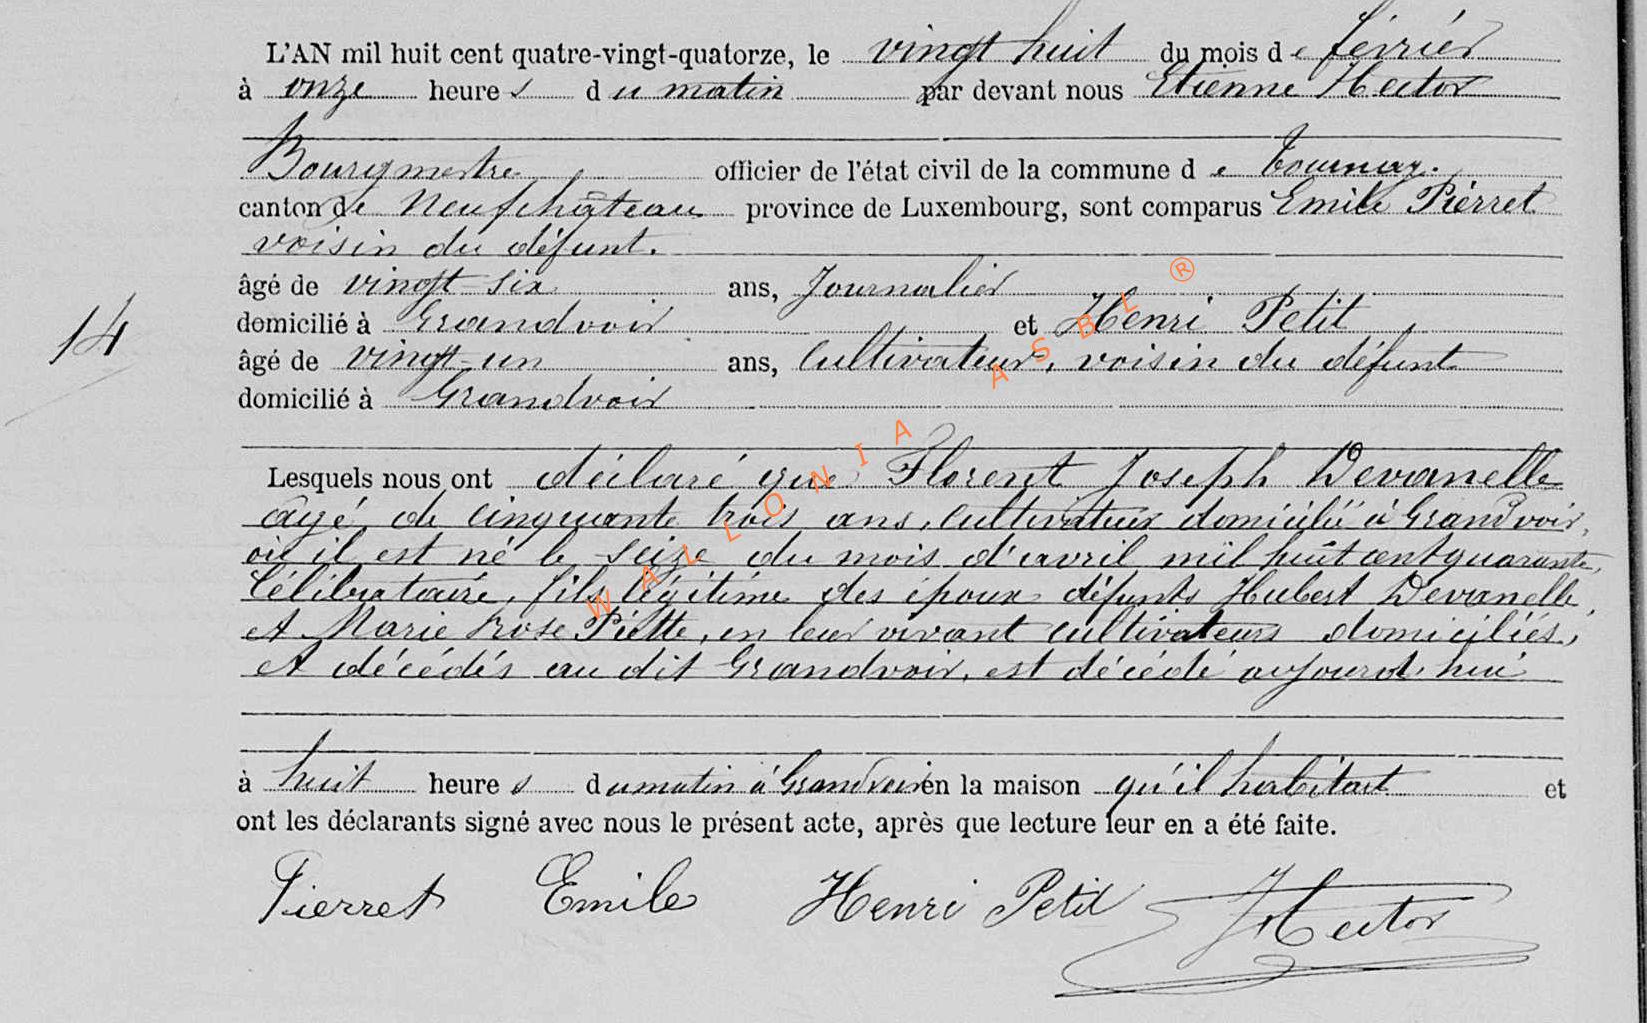 L'AN mil huit cent quatre-vingt-quatorze, le vingt huit du mois de février
à onze heures du matin par devant nous Etienne Hector
Bourgmestre officier de l'état civil de la commune de Tournay.
canton de Neufchâteau province de Luxembourg, sont comparus Emile Pierret
voisin du défunt.
âgé de vingt-six ans, Journalier
domicilié à Grandvoir et Henri Petit
14
âgé de vingt-un ans, Cultivateur, voisin du défunt
domicilié à Grandvoir
Lesquels nous ont déclaré que Florent Joseph Devanelle
âgé de cinquante trois ans, cultivateur domicilié à Grandvoir,
où il est né le seize du mois d'avril mil huit cent quarante,
Célibataire, fils légitime des époux défunts Hubert Devanelle,
et Marie Rose Piette, en leur vivant cultivateurs domiciliés,
et décédés au dit Grandvoir, est décédé aujourd'hui
à huit heures du matin à Grandvoir en la maison qu'il habitait et
ont les déclarants signé avec nous le présent acte, après que lecture leur en a été faite.
Pierret Emile Henri Petit Hector
WALLONIA ASBL ®